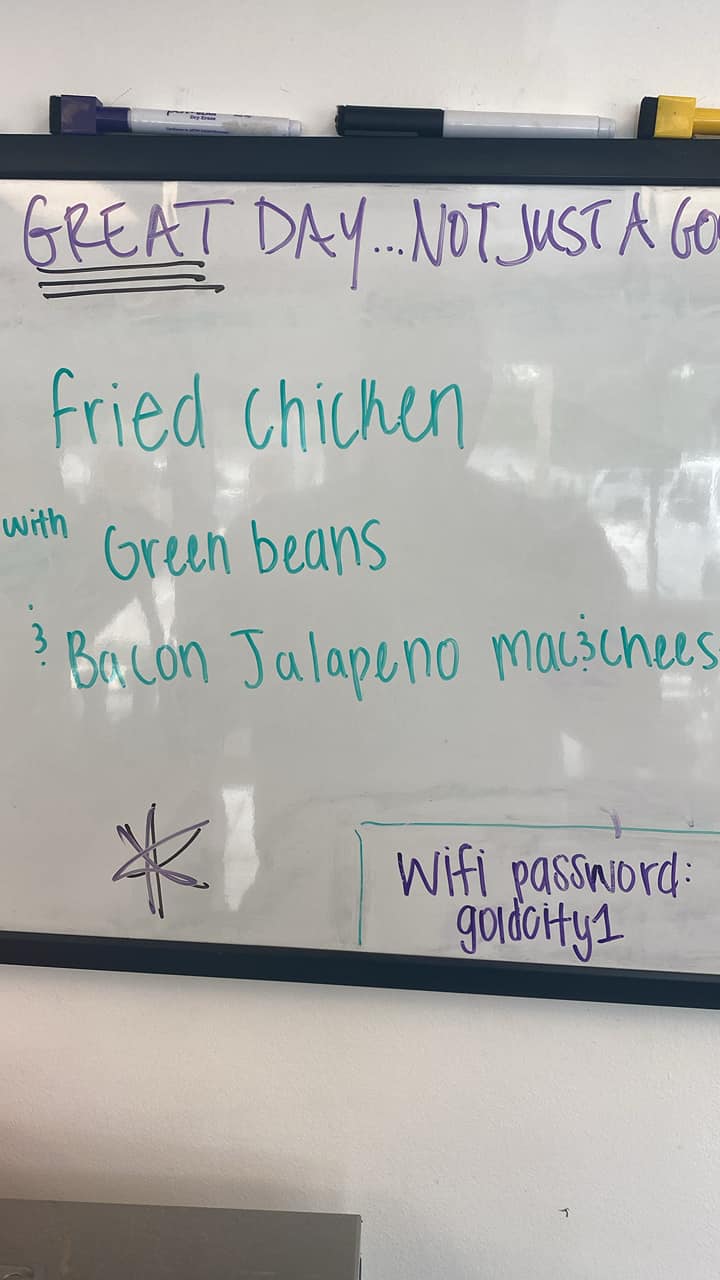 Dry Erase
GREAT DAY...NOT JUST A GO
Fried Chicken
with Green beans
& Bacon Jalapeno mac&chees
Wifi password:
goldcity1